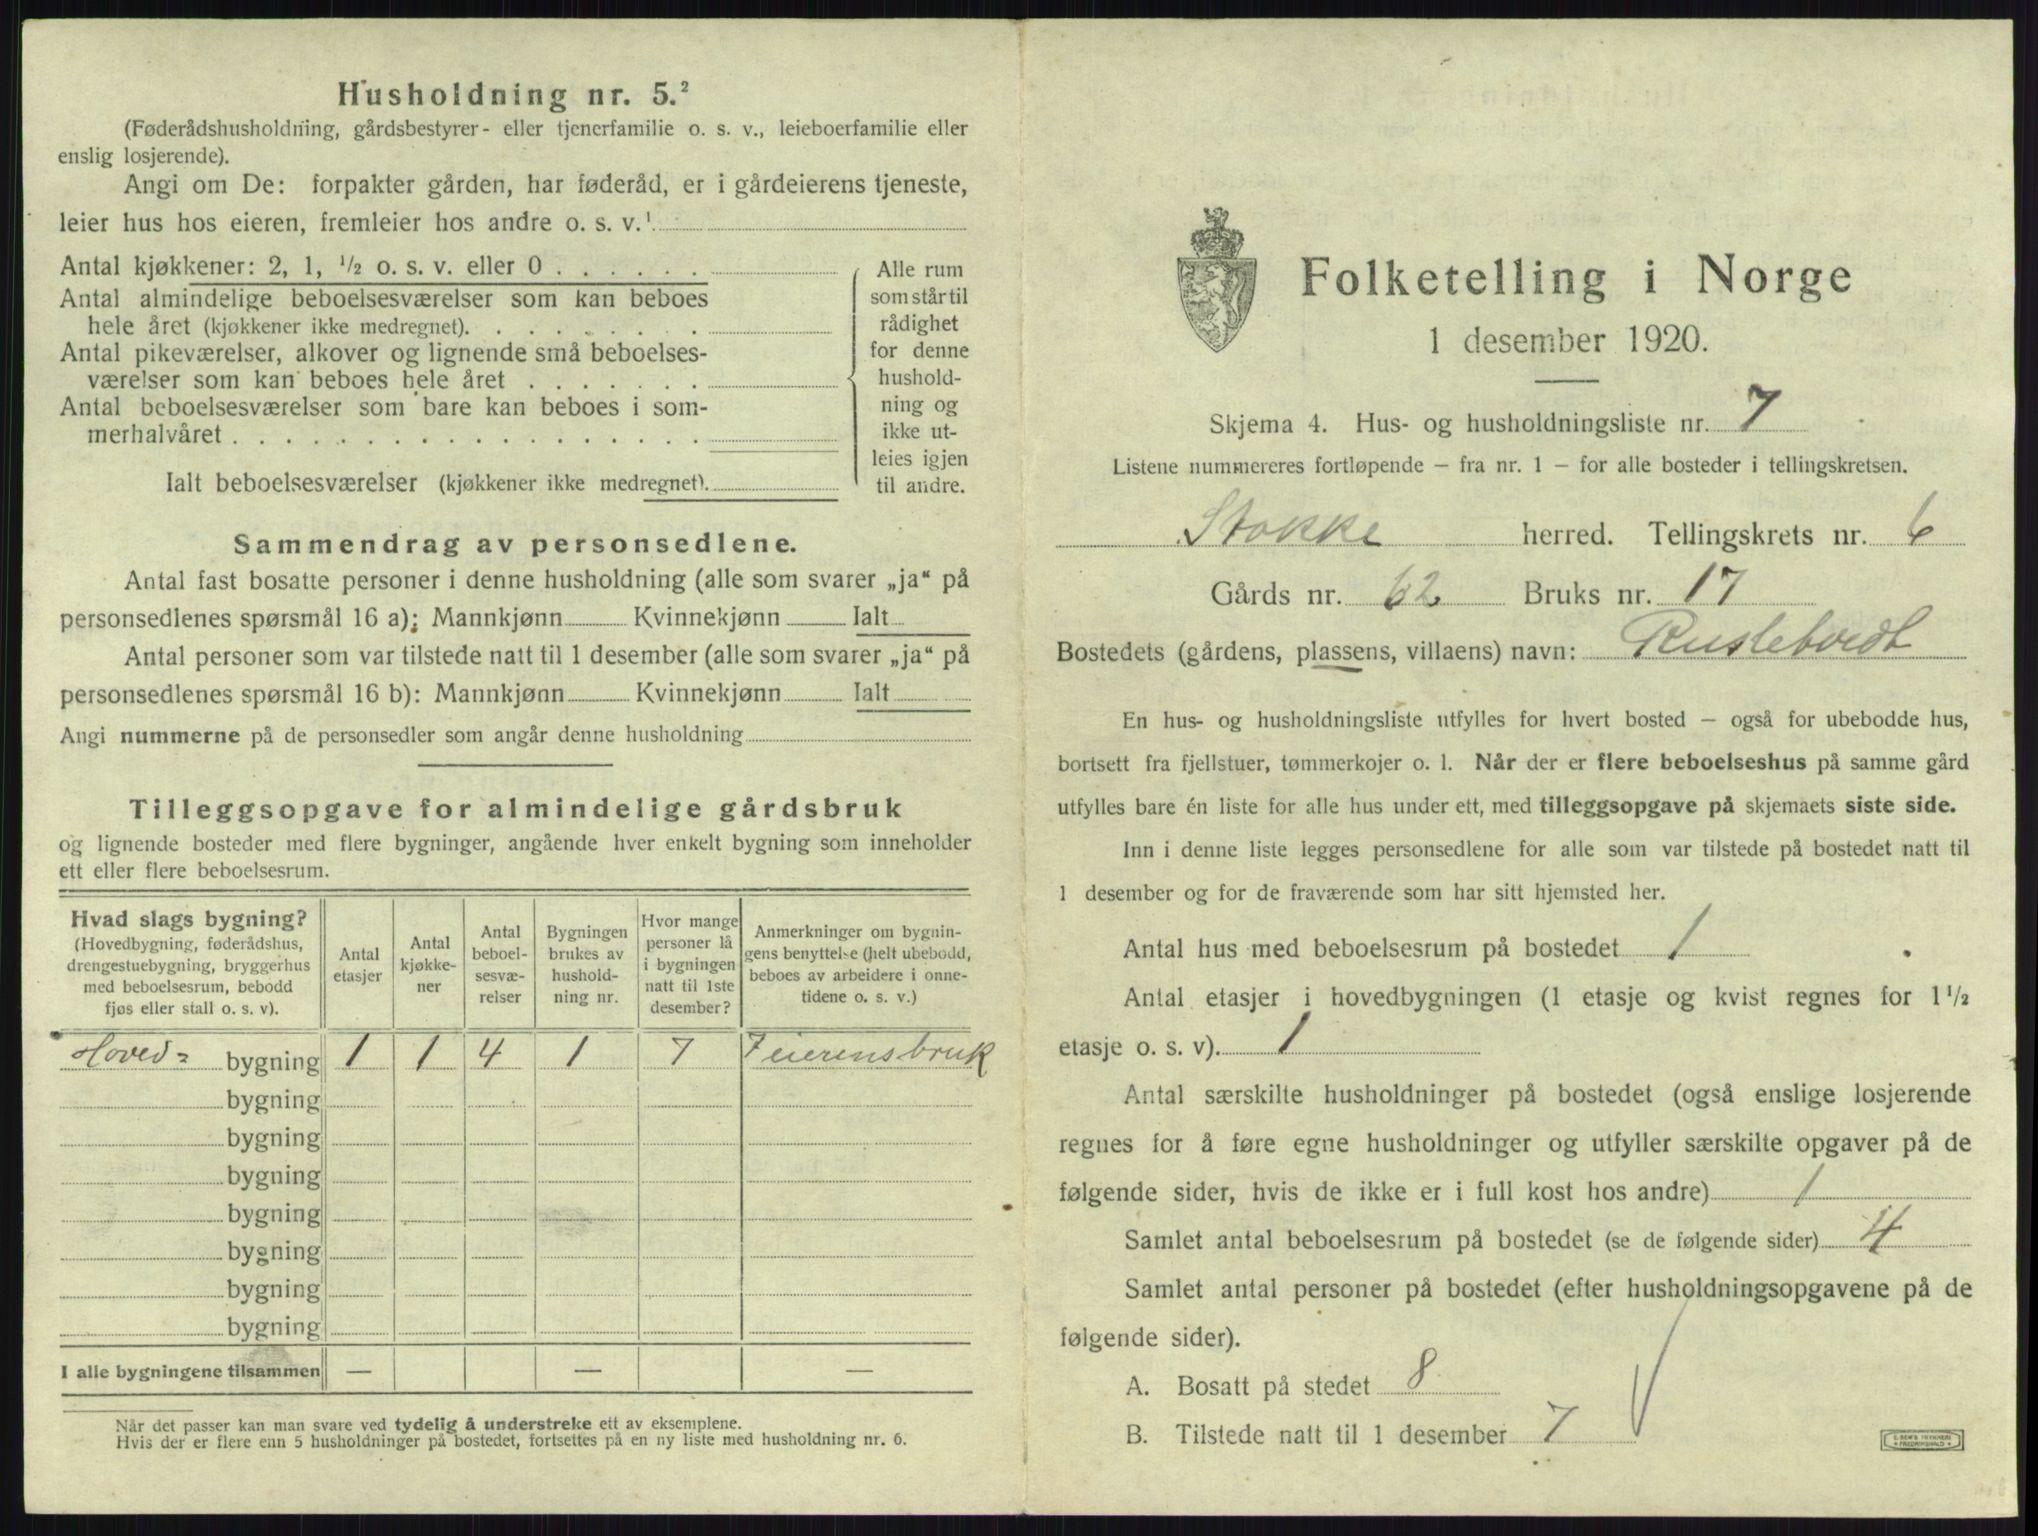 Husholdning nr. 5.²
(Føderådshusholdning, gårdsbestyrer- eller tjenerfamilie o. s. v., leieboerfamilie eller
enslig losjerende).
Angi om De: forpakter gården, har føderåd, er i gårdeierens tjeneste,
leier hus hos eieren, fremleier hos andre o. s. v.¹
Antal kjøkkener: 2, 1, ½ o. s. v. eller 0 . . . . . .
Antal almindelige beboelsesværelser som kan beboes
hele året (kjøkkener ikke medregnet). . . . . . . . .
Antal pikeværelser, alkover og lignende små beboelses-
værelser som kan beboes hele året . . . . . . .
Antal beboelsesværelser som bare kan beboes i som-
merhalvåret . . . . . . . . . . . . . . . . . .
Ialt beboelsesværelser (kjøkkener ikke medregnet).
Alle rum
som står til
rådighet
for denne
hushold-
ning og
ikke ut-
leies igjen
til andre.
Sammendrag av personsedlene.
Antal fast bosatte personer i denne husholdning (alle som svarer „ja“ på
personsedlenes spørsmål 16 a): Mannkjønn Kvinnekjønn Ialt
Antal personer som var tilstede natt til 1 desember (alle som svarer „ja“ på
personsedlenes spørsmål 16 b): Mannkjønn Kvinnekjønn Ialt
Angi nummerne på de personsedler som angår denne husholdning
Tilleggsopgave for almindelige gårdsbruk
og lignende bosteder med flere bygninger, angående hver enkelt bygning som inneholder
ett eller flere beboelsesrum.
Hvad slags bygning?
(Hovedbygning, føderådshus,
drengestuebygning, bryggerhus
med beboelsesrum, bebodd
fjøs eller stall o. s. v).
Antal
etasjer
Antal
kjøkke-
ner
Antal
beboel-
sesvæ-
relser
Bygningen
brukes av
hushold-
ning nr.
Hvor mange
personer lå
i bygningen
natt til 1ste
desember?
Anmerkninger om bygnin-
gens benyttelse (helt ubebodd,
beboes av arbeidere i onne-
tidene o. s. v.)
Hoved= bygning 1 1 4 1 7 Feierensbruk
bygning
bygning
bygning
bygning
bygning
bygning
bygning
I alle bygningene tilsammen — — —
Når det passer kan man svare ved tydelig å understreke ett av eksemplene.
Hvis der er flere enn 5 husholdninger på bostedet, fortsettes på en ny liste med husholdning nr. 6.
Folketelling i Norge
1 desember 1920.
Skjema 4. Hus- og husholdningsliste nr. 7
Listene nummereres fortløpende – fra nr. 1 – for alle bosteder i tellingskretsen.
Stokke herred. Tellingskrets nr. 6
Gårds nr. 62 Bruks nr. 17
Bostedets (gårdens, plassens, villaens) navn: Rustebvedt
En hus- og husholdningsliste utfylles for hvert bosted – også for ubebodde hus,
bortsett fra fjellstuer, tømmerkojer o. l. Når der er flere beboelseshus på samme gård
utfylles bare én liste for alle hus under ett, med tilleggsopgave på skjemaets siste side.
Inn i denne liste legges personsedlene for alle som var tilstede på bostedet natt til
1 desember og for de fraværende som har sitt hjemsted her.
Antal hus med beboelsesrum på bostedet 1
Antal etasjer i hovedbygningen (1 etasje og kvist regnes for 1½
etasje o. s. v). 1
Antal særskilte husholdninger på bostedet (også enslige losjerende
regnes for å føre egne husholdninger og utfyller særskilte opgaver på de
følgende sider, hvis de ikke er i full kost hos andre) 1
Samlet antal beboelsesrum på bostedet (se de følgende sider) 4
Samlet antal personer på bostedet (efter husholdningsopgavene på de
følgende sider).
A. Bosatt på stedet 8
B. Tilstede natt til 1 desember 7